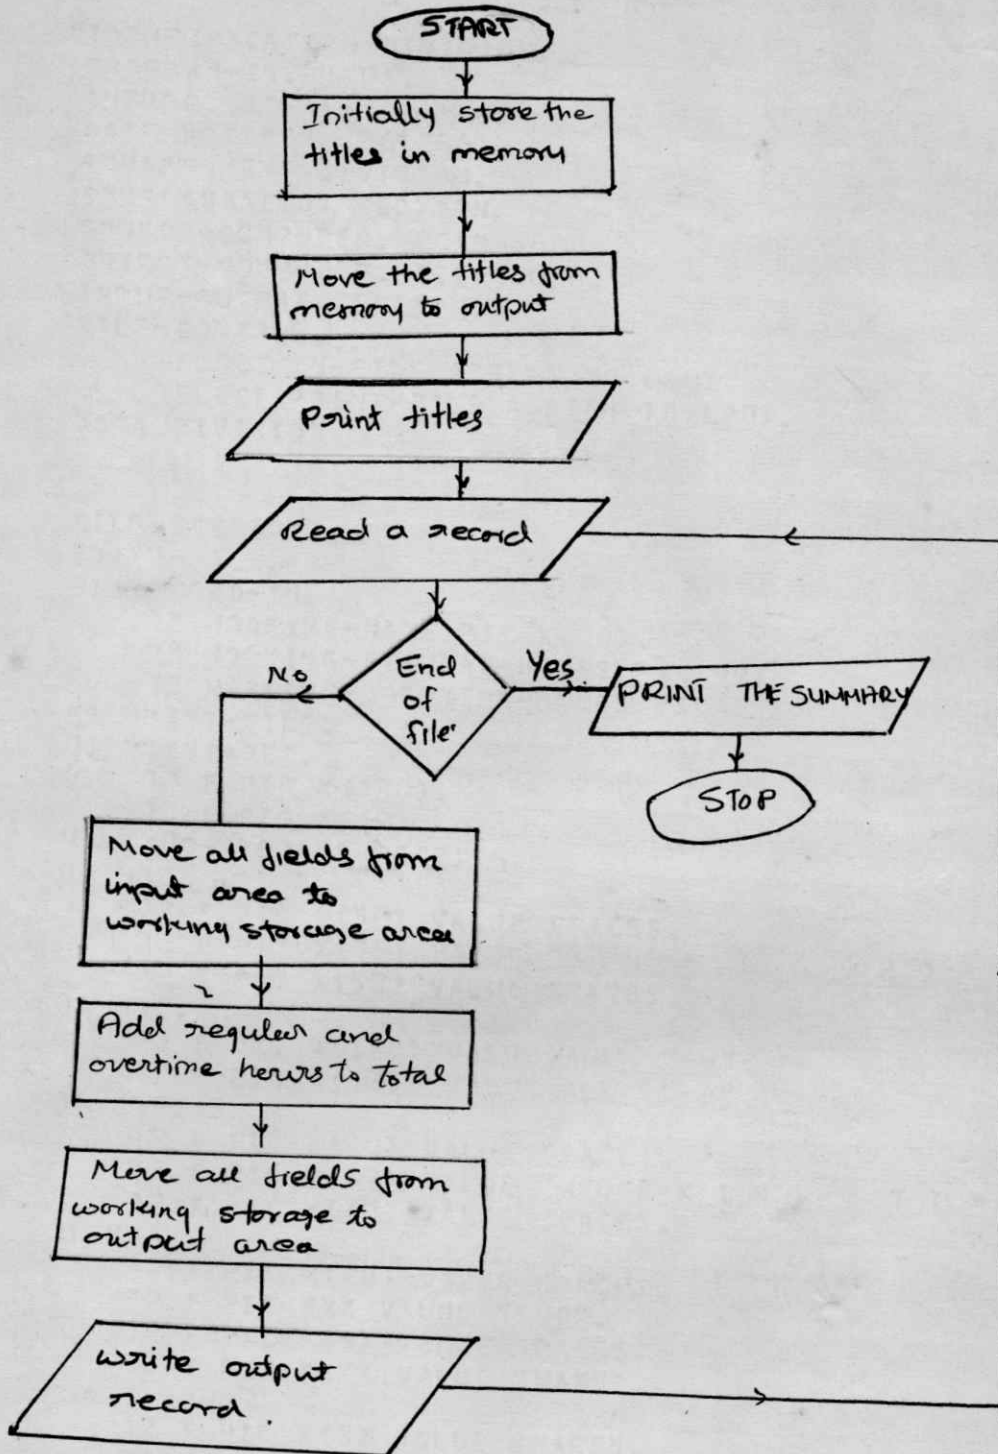 START
Initially store the
titles in memory
Move the titles from
memory to output
Print titles
Read a record
End
of
file
No
Yes
PRINT THE SUMMARY
STOP
Move all fields from
input area to
working storage area
Add regular and
overtime hours to total
Move all fields from
working storage to
output area
write output
record.